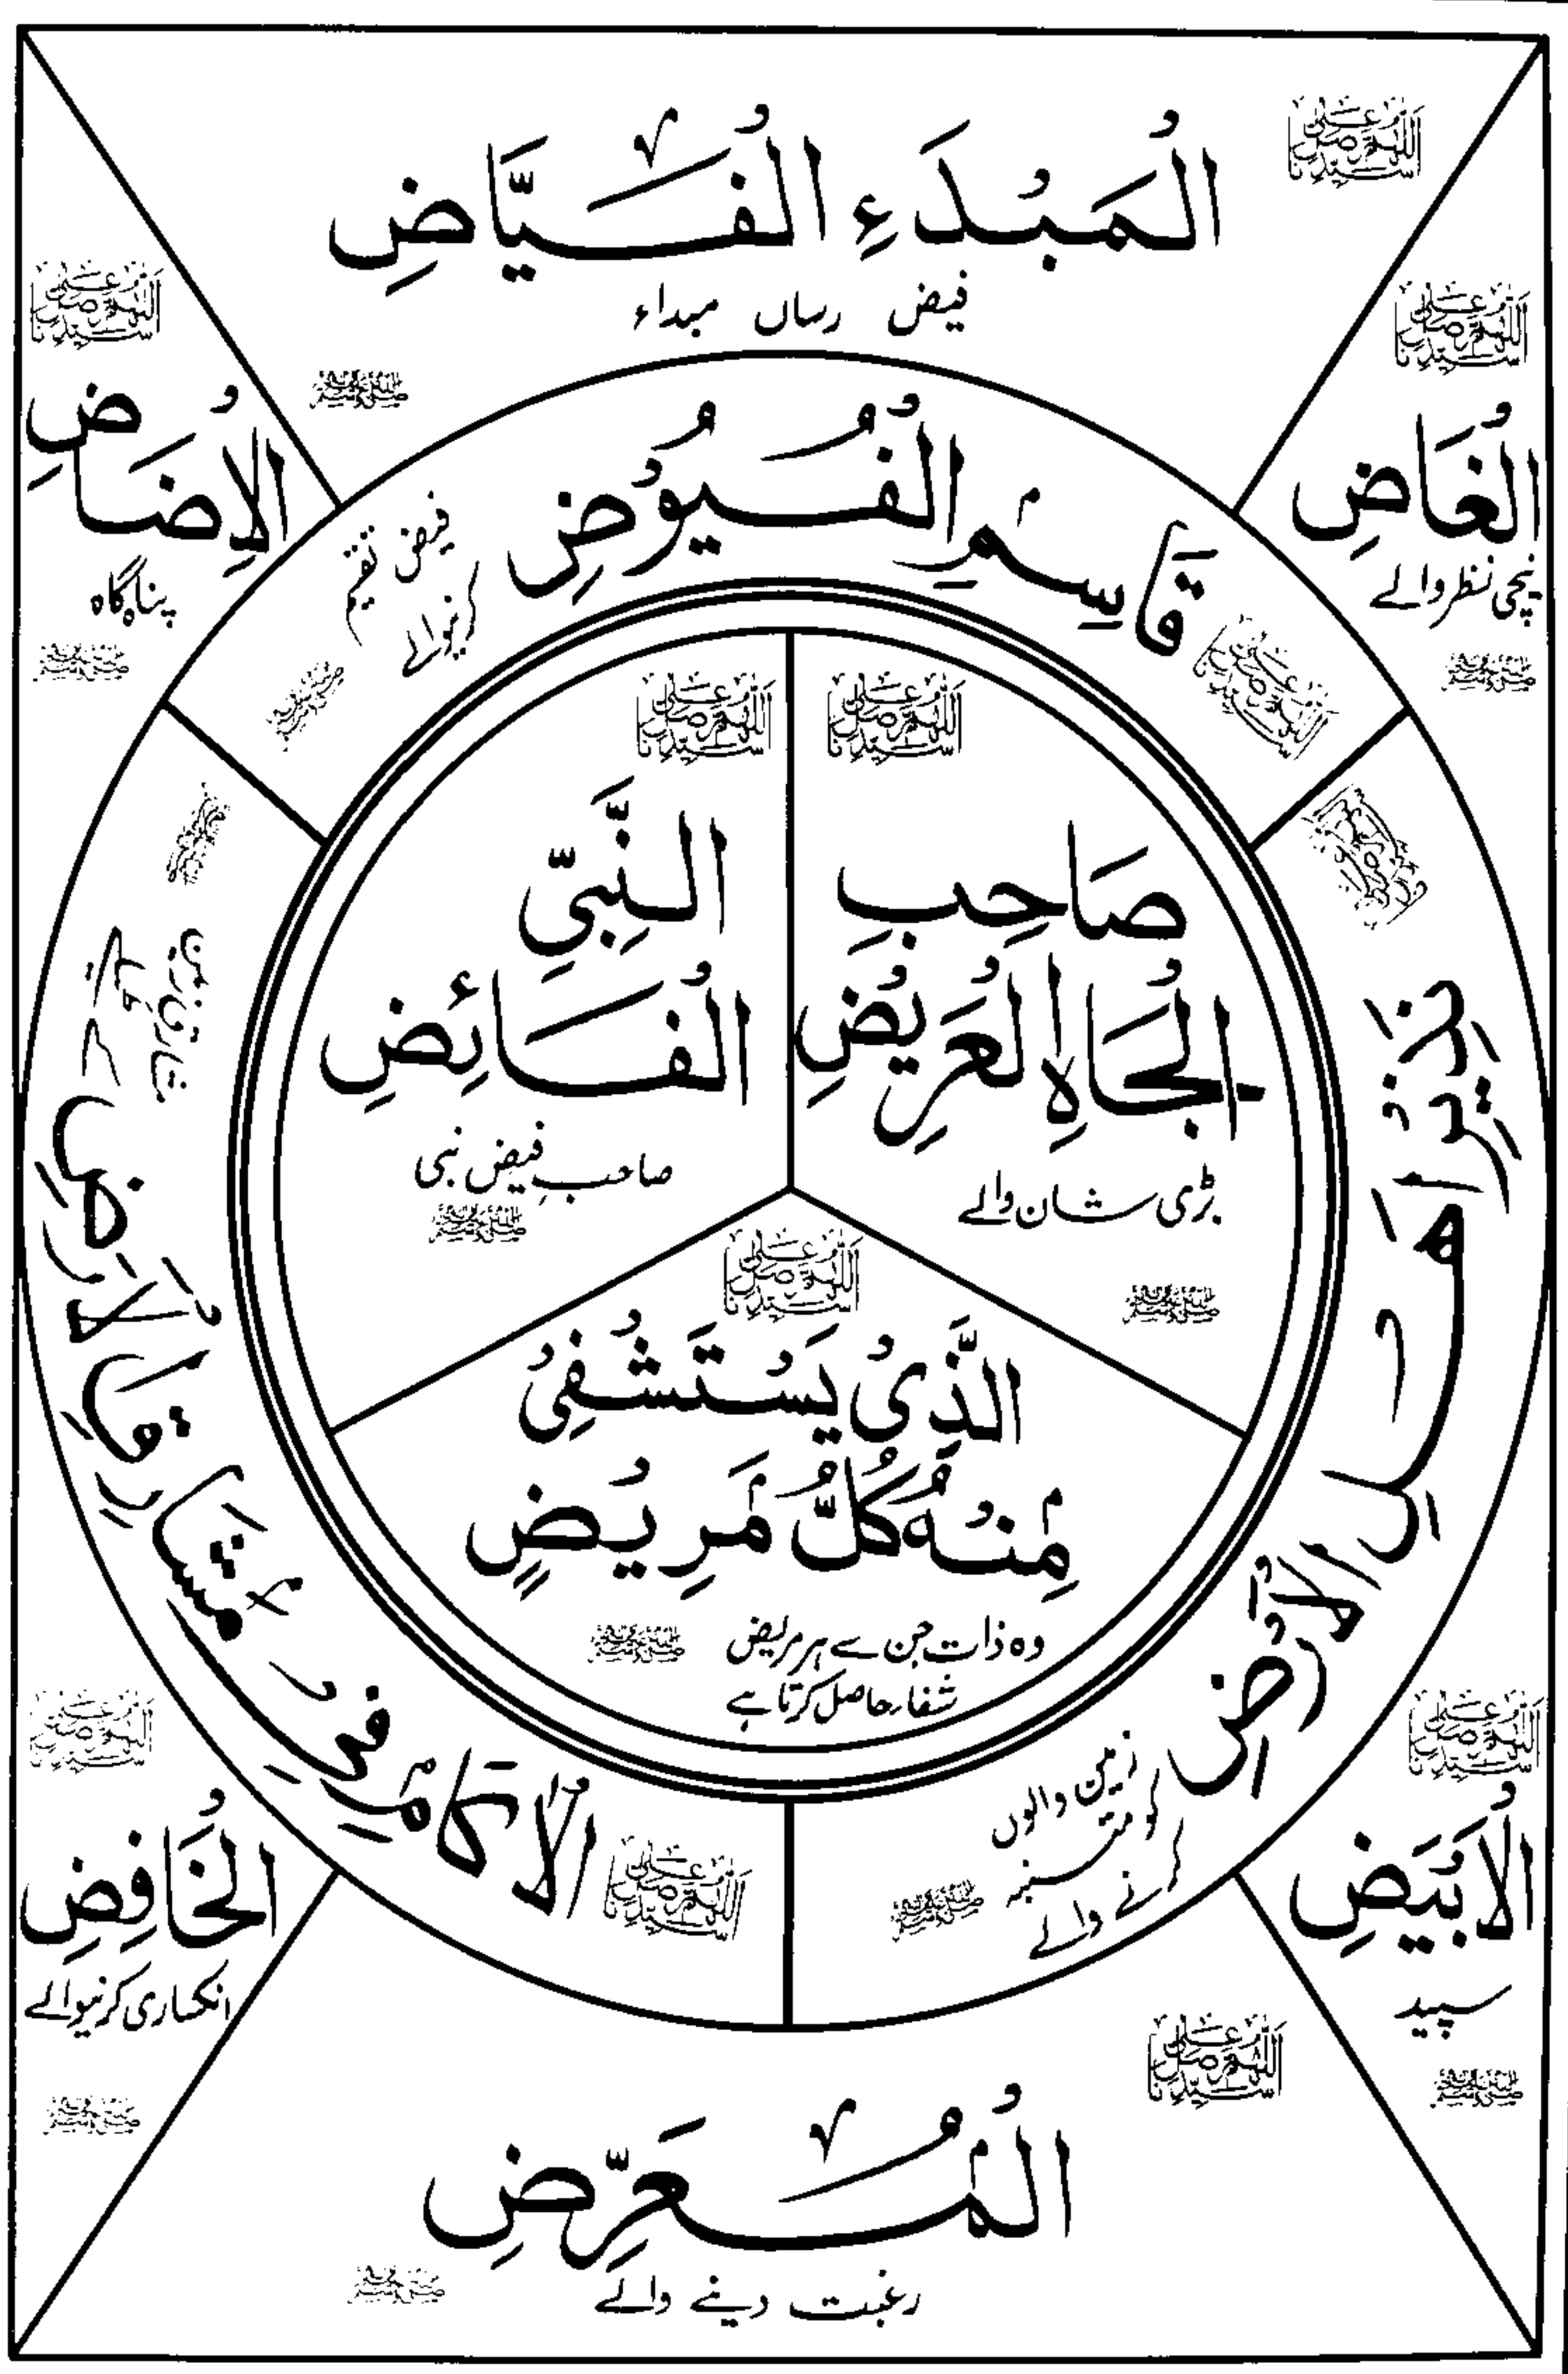 اللهم صل على سيدنا
الْمَبْدَءِ الْفَيَّاضِ
فیض رساں مبداء
صلی اللہ علیہ وسلم
اللهم صل على سيدنا
الْغَاضِ
نیچی نظر والے
صلی اللہ علیہ وسلم
اللهم صل على سيدنا
الْاِضَاضِ
پناہ گاہ
صلی اللہ علیہ وسلم
اللهم صل على سيدنا
قَاسِمِ الْفُيُوْضِ
فیض تقسیم
کرنیوالے
صلی اللہ علیہ وسلم
اللهم صل على سيدنا
صَاحِبِ
الْجَاهِ الْعَرِيْضِ
بڑی شان والے
صلی اللہ علیہ وسلم
اللهم صل على سيدنا
النَّبِيِّ
الْفَائِضِ
صاحبِ فیض نبی
صلی اللہ علیہ وسلم
اللهم صل على سيدنا
الَّذِىْ يَسْتَشْفِىْ
مِنْهُ كُلُّ مَرِيْضٍ
وہ ذات جن سے ہر مریض
شفاء حاصل کرتا ہے
صلی اللہ علیہ وسلم
اللهم صل على سيدنا
اَهْلِ الْاَرْضِ
زمین والوں
کو متنبہ
کرنے والے
صلی اللہ علیہ وسلم
اللهم صل على سيدنا
الْاَكَامِ فِىْ مَشَارِقِ الْاَرْضِ
صلی اللہ علیہ وسلم
اللهم صل على سيدنا
الْاَبْيَضِ
سپید
صلی اللہ علیہ وسلم
اللهم صل على سيدنا
الْخَافِضِ
انکساری کرنیوالے
صلی اللہ علیہ وسلم
اللهم صل على سيدنا
الْمُعَرِّضِ
رغبت دینے والے
صلی اللہ علیہ وسلم